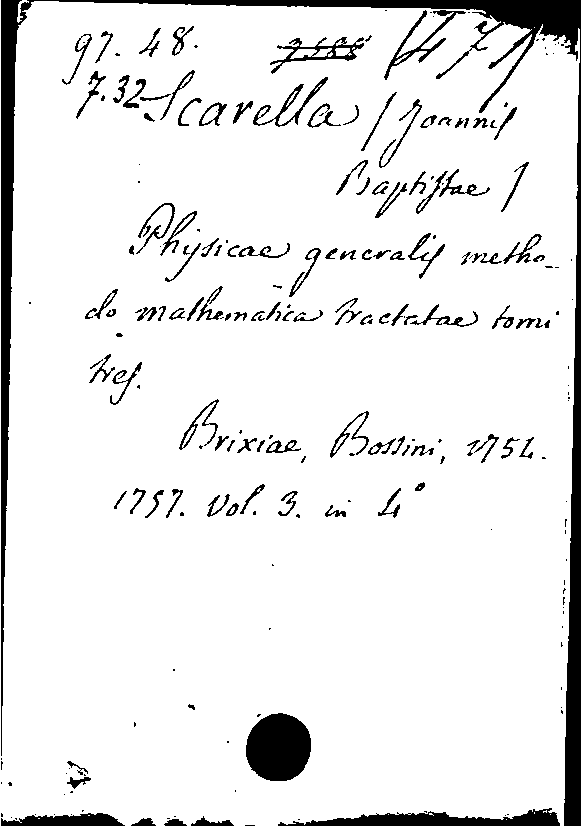 97. 48. 3588 (471)
7.32 Scarella / Joannis
Baptistae /
Physicae generalis metho-
do mathematica tractatae tomi
tres.
Brixiae, Bossini, 1754.
1757. Vol. 3. in 4°